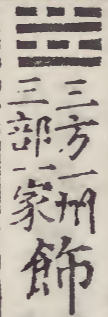 三方一州
三部一家
飾